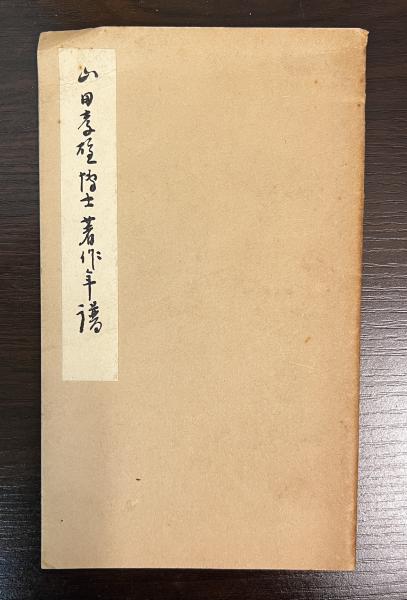 山田孝雄博士著作年譜